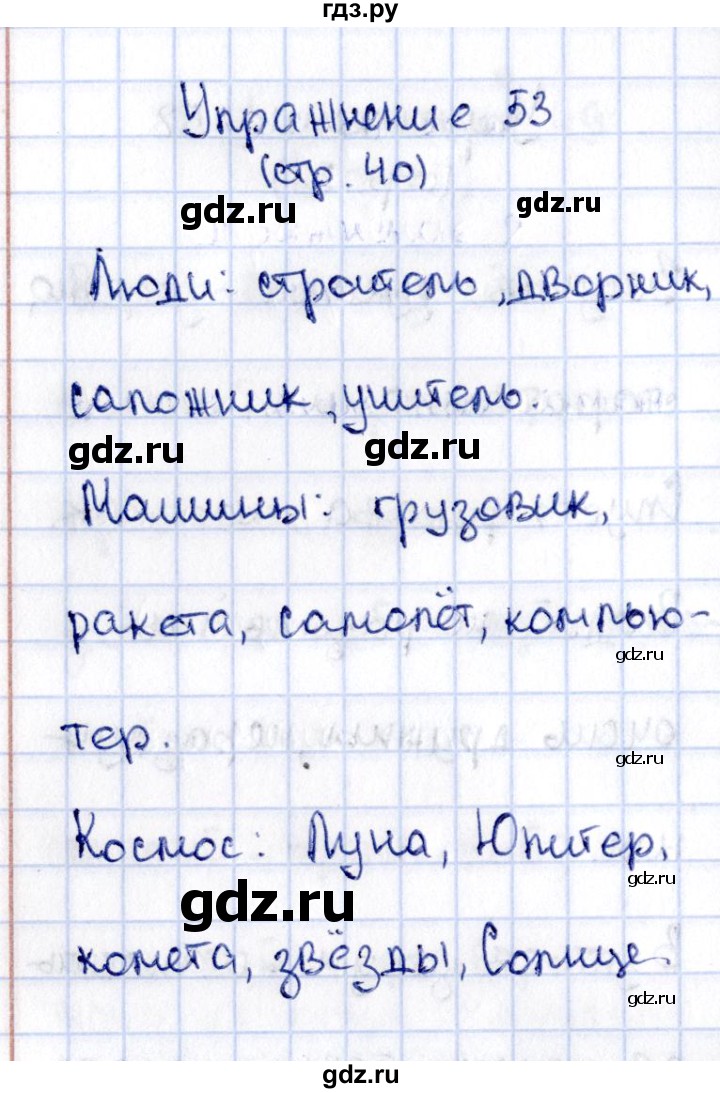 гдз.ру
Упражнение 53
(стр. 40)
gdz.ru
gdz.ru
Люди: строитель, дворник,
сапожник, учитель.
gdz.ru
gdz.ru
Машины: грузовик,
ракета, самолёт, компью-
gdz.ru
тер.
gdz.ru
Космос: Луна, Юпитер,
gdz.ru
gdz.ru
комета, звёзды, Солнце.
gdz.ru
gdz.ru